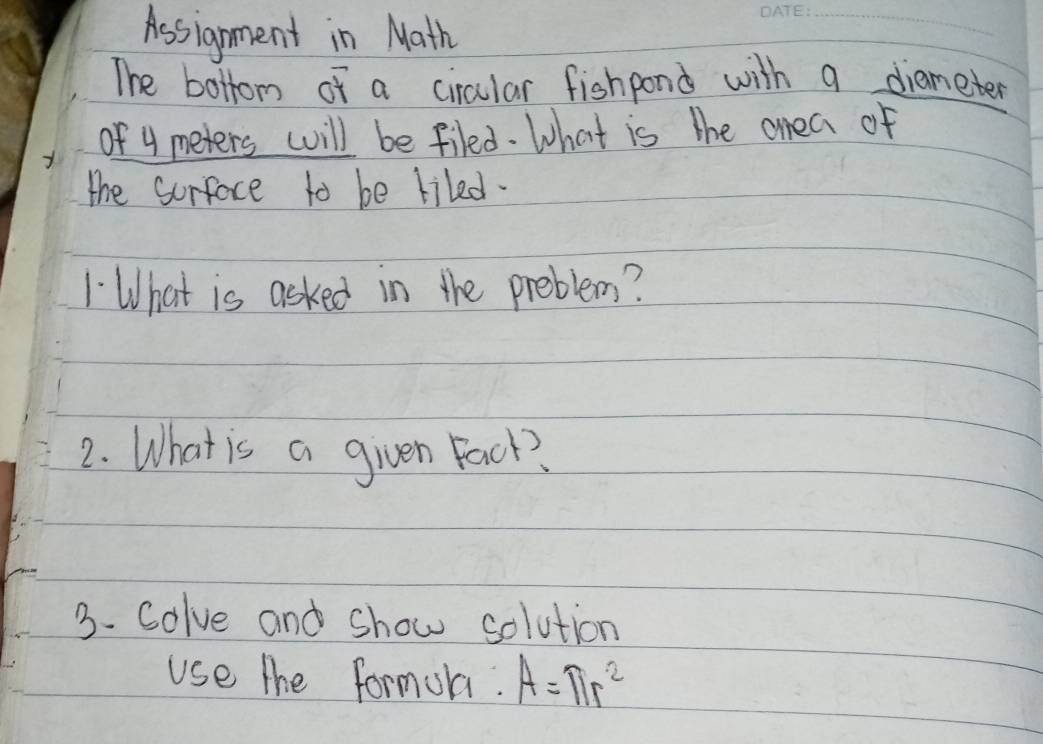 DATE:
Assignment in Math
The bottom of a circular fishpond with a diameter
of 4 meters will be filed. What is the area of
the surface to be tiled.
1. What is asked in the problem?
2. What is a given Fact?
3- Solve and show solution
Use the formula : A = πr²